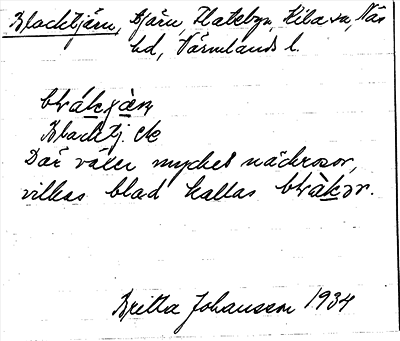 Blacktjärn, Djärn, Flatebyn, Kila sn, Näs
hd, Värmlands l.
blákɡàɳ
Blacktj. ek
Där växer mycket näckrosor,
vilkas blad kallas blàkər.
Britta Johansson 1934